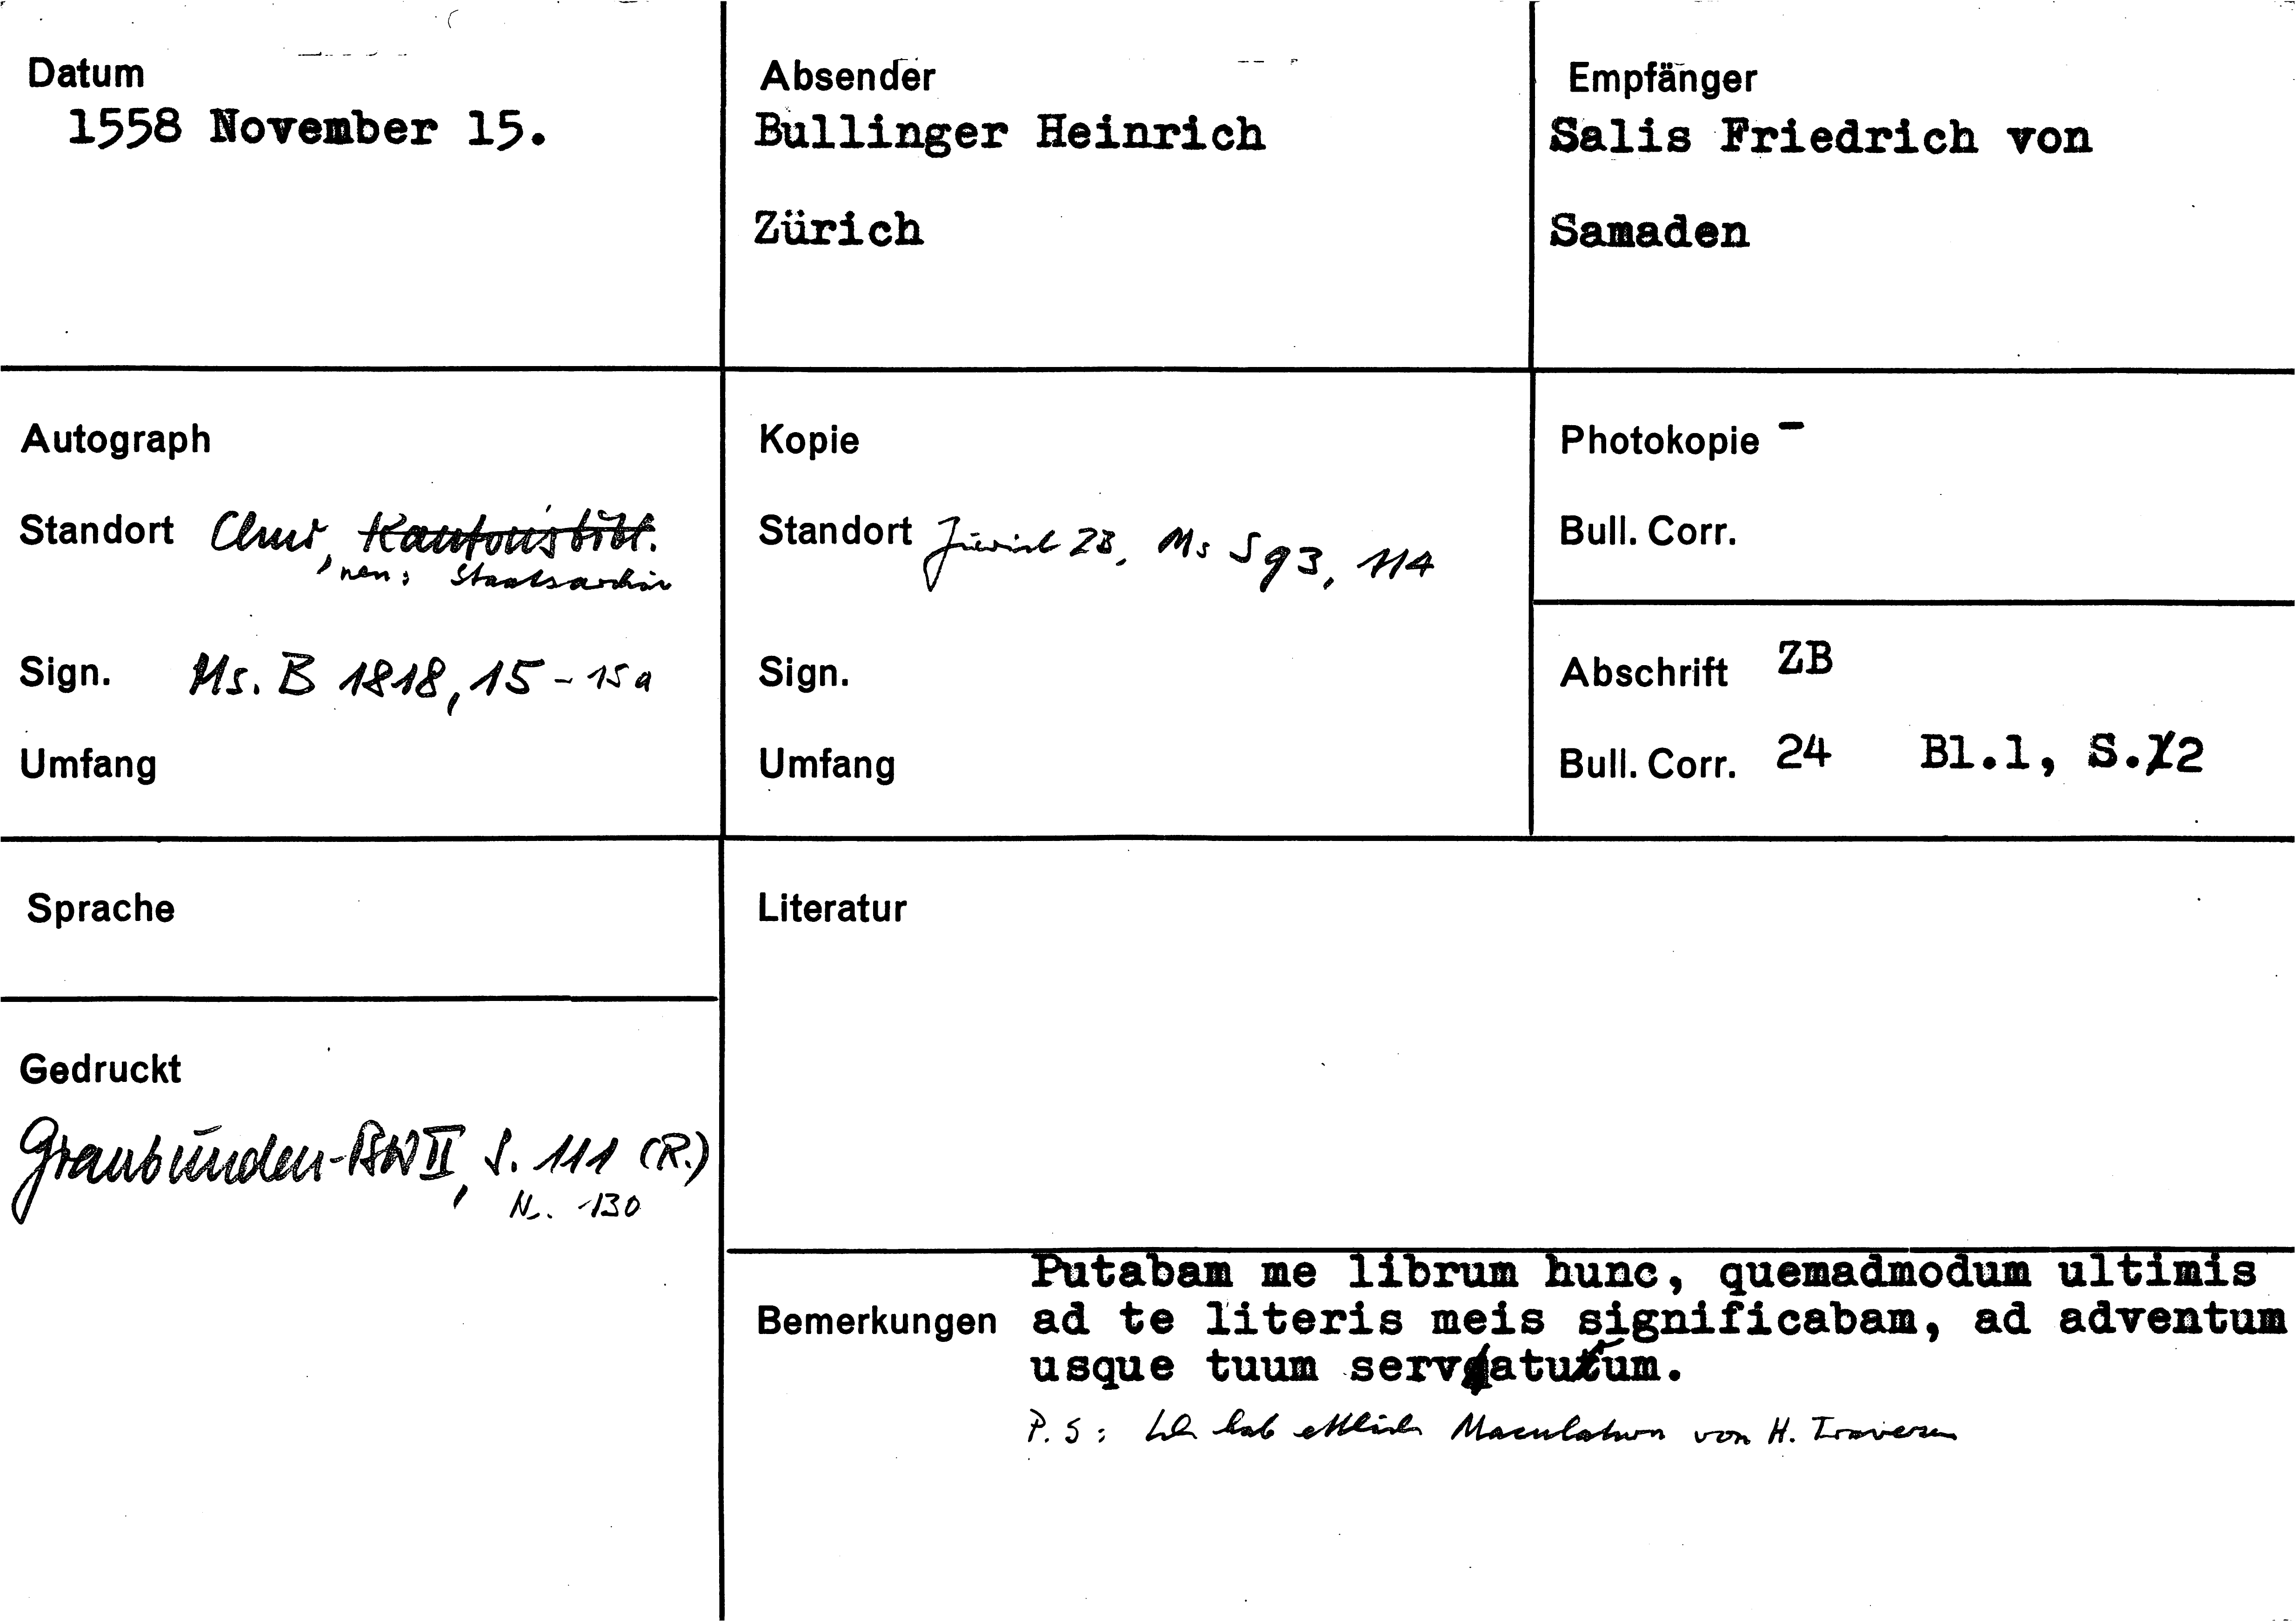 Datum
1558 November 15.
Absender
Bullinger Heinrich
Zürich
Empfänger
Salis Friedrich von
Samaden
Autograph
Standort Chur, Kantonsbibl.
neu: Staatsarchiv
Sign. Ms. B 1818, 15 - 15a
Umfang
Kopie
Standort Zürich ZB, Ms S 93, 114
Sign.
Umfang
Photokopie -
Bull. Corr.
Abschrift ZB
Bull. Corr. 24 Bl.1, S.2
Sprache
Gedruckt
Graubünden-BW II, S. 111 (R.)
N. 130
Literatur
Bemerkungen
Putabam me librum hunc, quemadmodum ultimis
ad te literis meis significabam, ad adventum
usque tuum servaturum.
P. S: Ich hab ettlich Maculaturen von H. Traversen